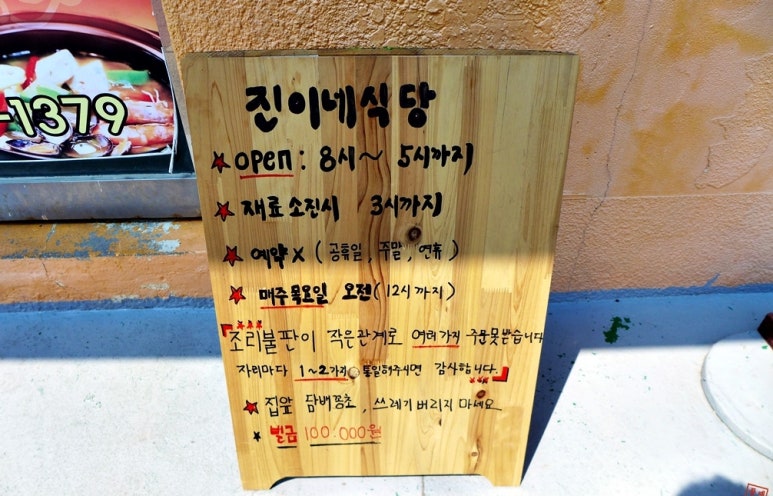 -1379
진이네식당
★ open : 8시~ 5시까지
★ 재료소진시 3시까지
★ 예약X (공휴일, 주말, 연휴)
★ 매주목요일/오전(12시까지)
조리불판이 작은관계로 여러가지 주문못받습니다
자리마다 1~2가지 통일해주시면 감사합니다.
★ 집앞 담배꽁초, 쓰레기버리지 마세요
★ 벌금 100.000원